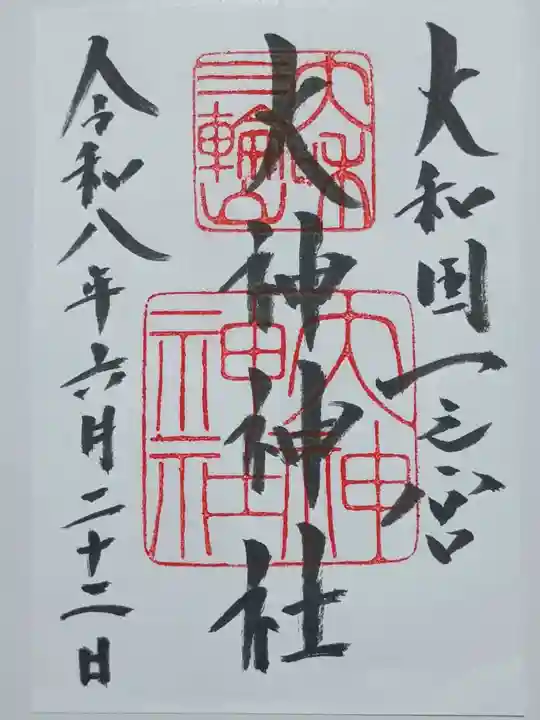 大和国一之宮
大神神社
令和八年六月二十二日
大和
三輪山
大神
神社